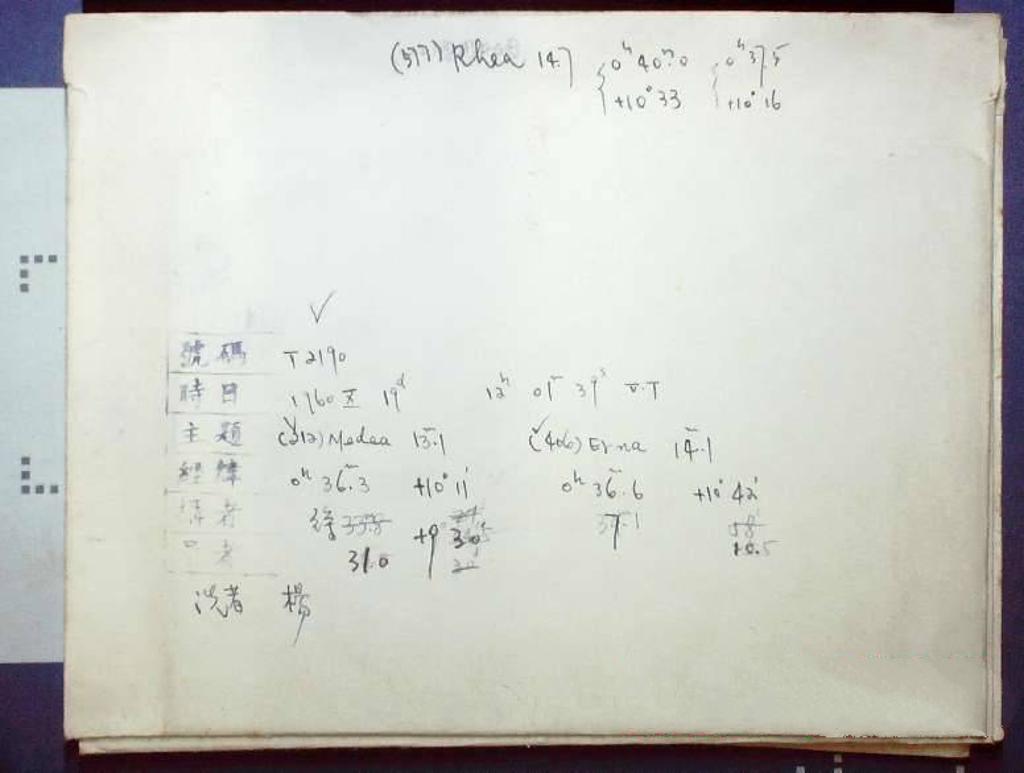 (577) Rhea 14.7 0ʰ 40ᵐ.0 0ʰ 37.5
+10° 33 +10° 16
號碼 T 2190
時日 1960 X 19ᵈ 12ʰ 01ᵐ 39ˢ U.T
主題 (212) Medea 13ᵐ.1 (406) Erna 14ᵐ.1
經緯 0ʰ 36ᵐ.3 +10° 11' 0ʰ 36ᵐ.6 +10° 42'
者 33.8 +9 30
者 31.0 10.5
洗者 楊